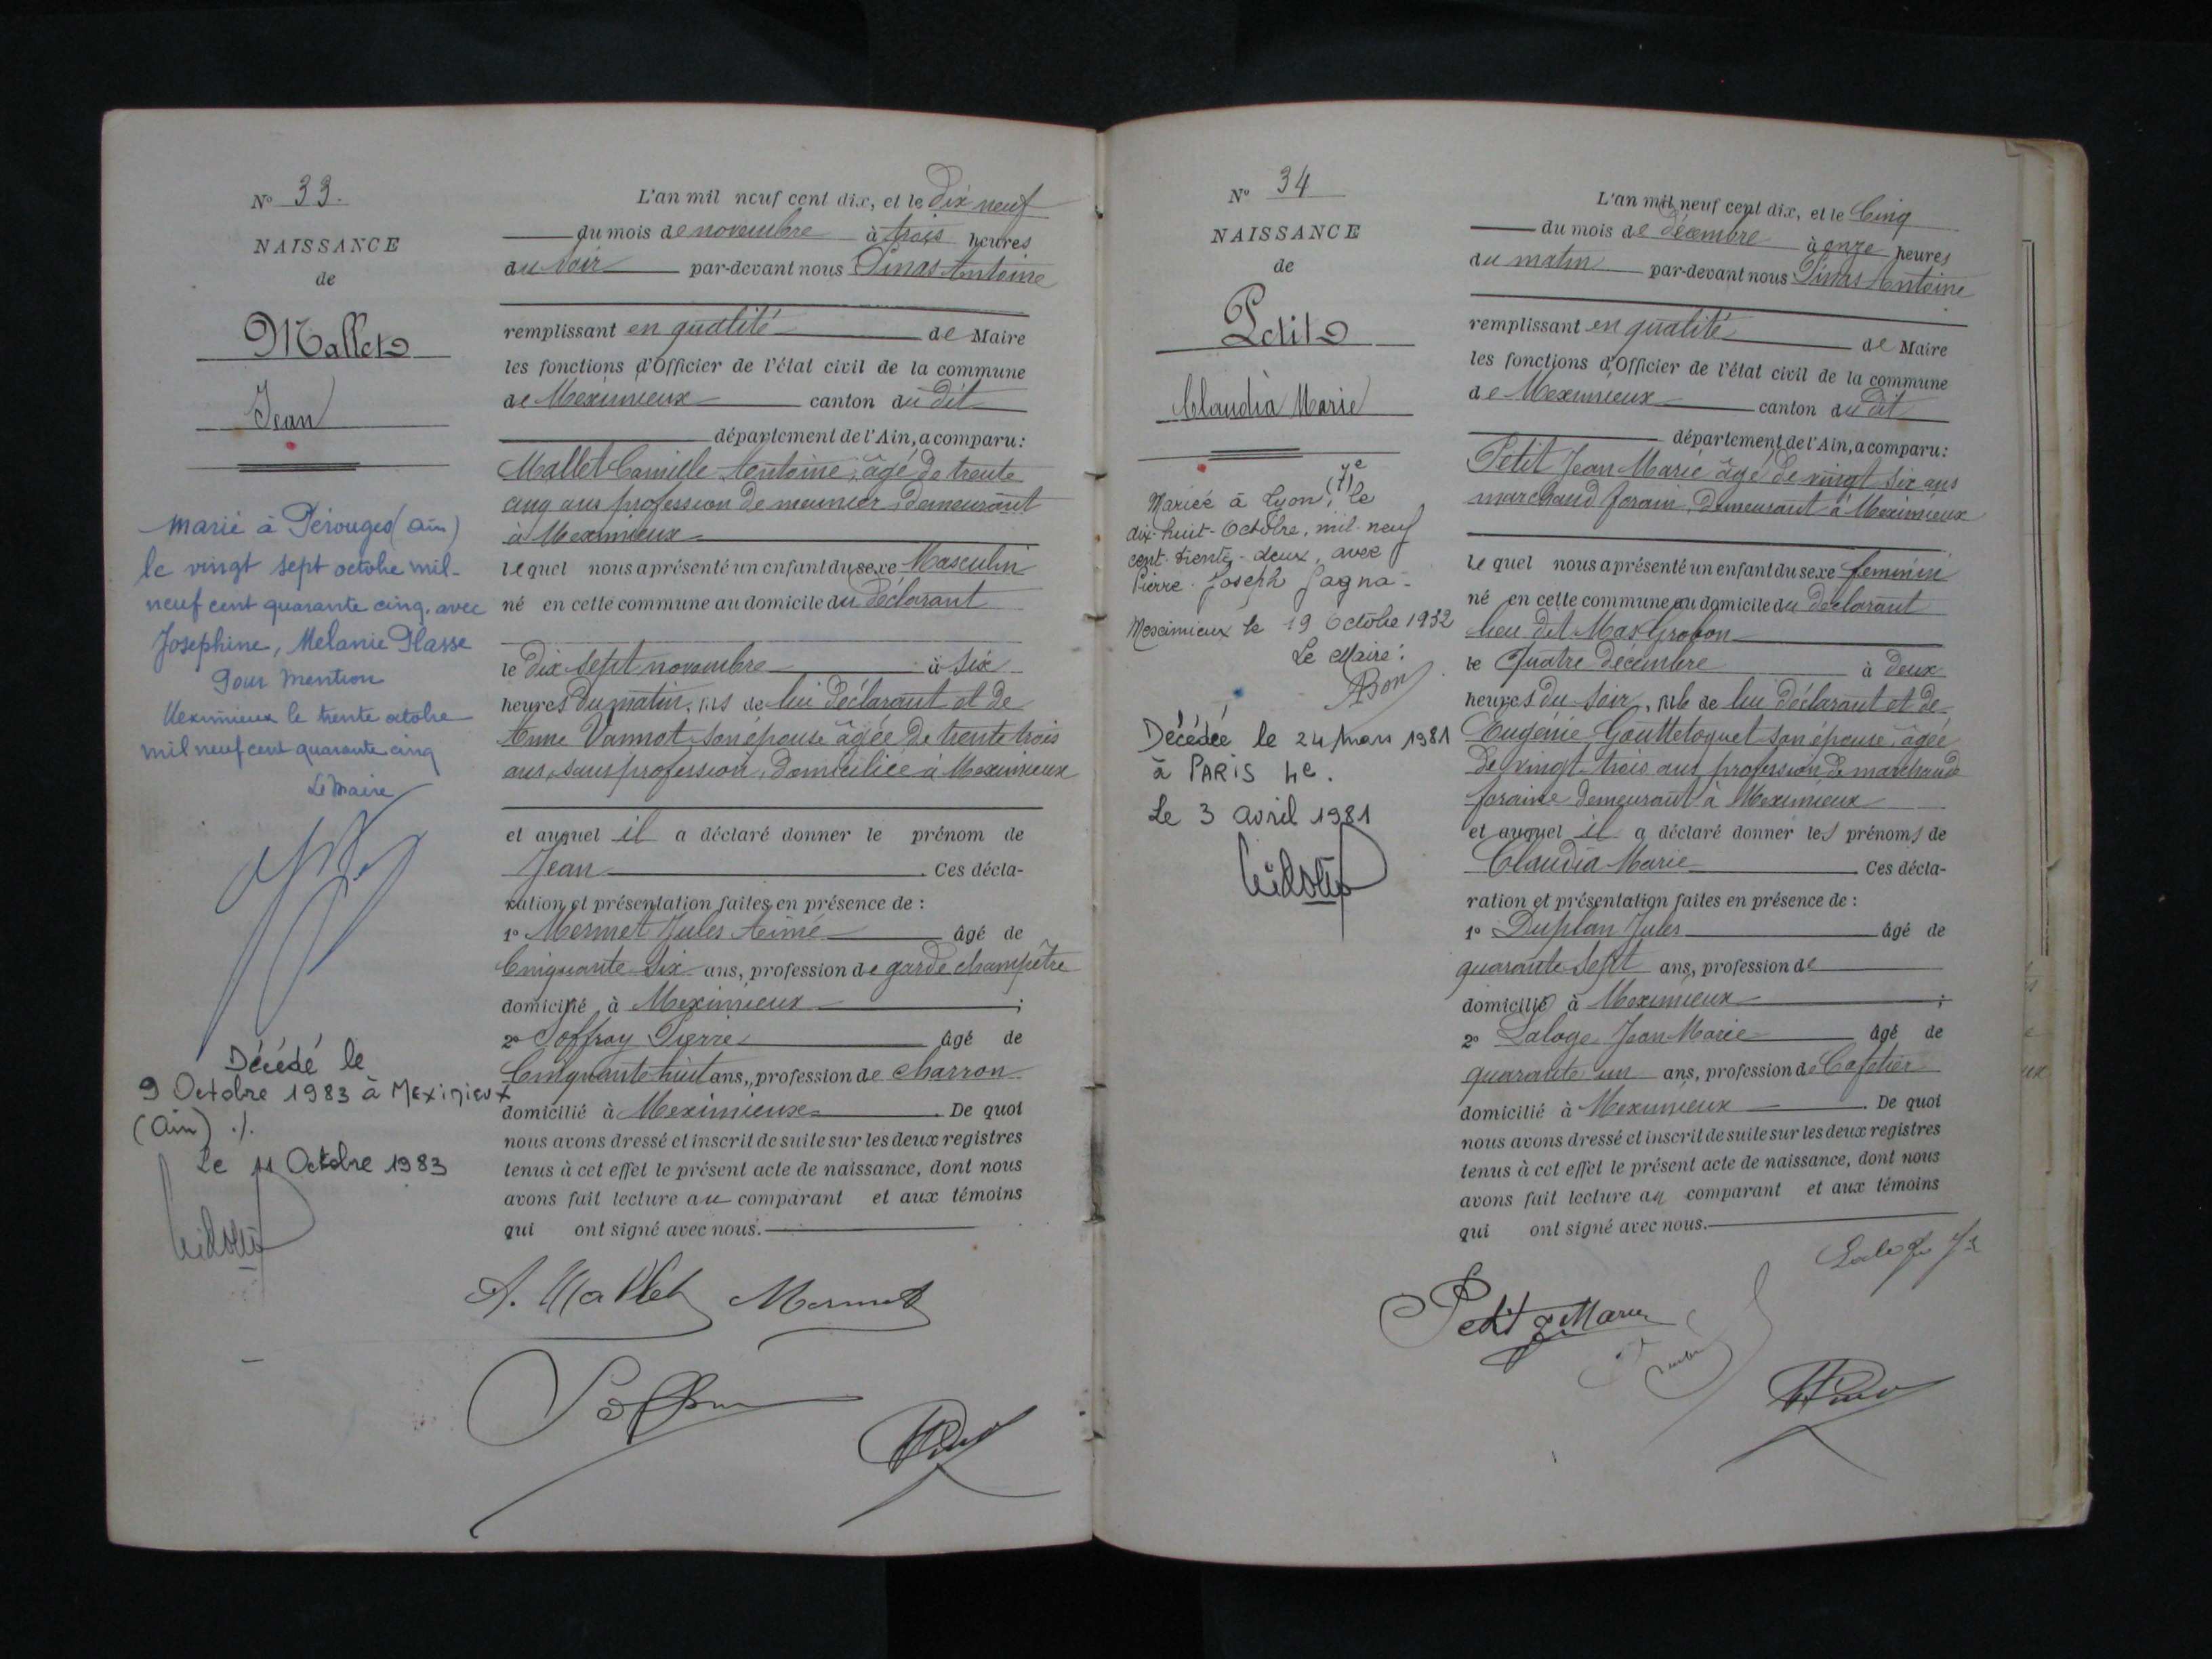 N° 33.
NAISSANCE
de
Mallet
Jean
marié à Pérouges (Ain)
le vingt sept octobre mil-
neuf cent quarante cinq, avec
Joséphine, Mélanie Plasse
Pour Mention
Meximieux le trente octobre
mil neuf cent quarante cinq
Le Maire
Décédé le
9 Octobre 1983 à Meximieux
(Ain) ./.
Le 11 Octobre 1983
L'an mil neuf cent dix, et le Dix neuf
du mois de novembre à trois heures
du soir par-devant nous Pinas Antoine
remplissant en qualité de Maire
les fonctions d'Officier de l'état civil de la commune
de Meximieux canton du dit
département de l'Ain, a comparu:
Mallet Camille Antoine, âgé de trente
cinq ans profession de meunier, demeurant
à Meximieux
lequel nous a présenté un enfant du sexe Masculin
né en cette commune au domicile du déclarant
le Dix sept novembre à six
heures du matin, fils de lui déclarant et de
Anne Vannot, son épouse âgée de trente trois
ans, sans profession, domiciliée à Meximieux
et auquel il a déclaré donner le prénom de
Jean. Ces décla-
ration et présentation faites en présence de :
1° Mermet Jules Aimé âgé de
Cinquante six ans, profession de garde champêtre
domicilié à Meximieux ;
2° Joffray Pierre âgé de
Cinquante huit ans, profession de charron
domicilié à Meximieux. De quoi
nous avons dressé et inscrit de suite sur les deux registres
tenus à cet effet le présent acte de naissance, dont nous
avons fait lecture au comparant et aux témoins
qui ont signé avec nous.
A. Mallet Mermet
N° 34
NAISSANCE
de
Petit
Claudia Marie
Mariée à Lyon (7e), le
dix-huit-Octobre, mil-neuf
cent-trente-deux, avec
Pierre-Joseph Gagna-
Meximieux le 19 Octobre 1932
Le Maire:
Décédée le 24 mars 1981
à PARIS 4e.
Le 3 avril 1981
L'an mil neuf cent dix, et le Cinq
du mois de décembre à onze heures
du matin par-devant nous Pinas Antoine
remplissant en qualité de Maire
les fonctions d'Officier de l'état civil de la commune
de Meximieux canton du dit
département de l'Ain, a comparu:
Petit Jean Marie âgé de vingt six ans
marchand forain, demeurant à Meximieux
lequel nous a présenté un enfant du sexe feminin
né en cette commune au domicile du déclarant
lieu dit Mas Grobon
le Quatre décembre à deux
heures du soir, fille de lui déclarant et de
Eugénie Gouttetoquet son épouse, âgée
de vingt trois ans profession de marchande
foraine demeurant à Meximieux
et auquel il a déclaré donner les prénoms de
Claudia Marie. Ces décla-
ration et présentation faites en présence de :
1° Duplan Jules âgé de
quarante sept ans, profession de
domicilié à Meximieux ;
2° Laloge Jean Marie âgé de
quarante un ans, profession de Cafetier
domicilié à Meximieux. De quoi
nous avons dressé et inscrit de suite sur les deux registres
tenus à cet effet le présent acte de naissance, dont nous
avons fait lecture au comparant et aux témoins
qui ont signé avec nous.
Petit J Marie